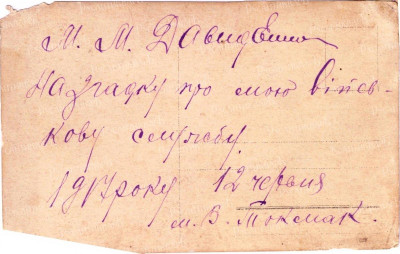 М. М. Давиденко
На згадку про мою війсь-
кову службу.
1917 року 12 червня
м. В. Токмак.